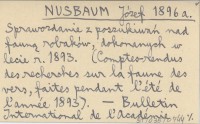 NUSBAUM Józef 1896a.
Sprawozdanie z poszukiwań nad
fauną robaków, dokonanych w
lecie r. 1893. (Compte-rendus
des recherches sur la faune des
vers, faites pendant l'été de
l'année 1893). — Bulletin
International de l'Académie